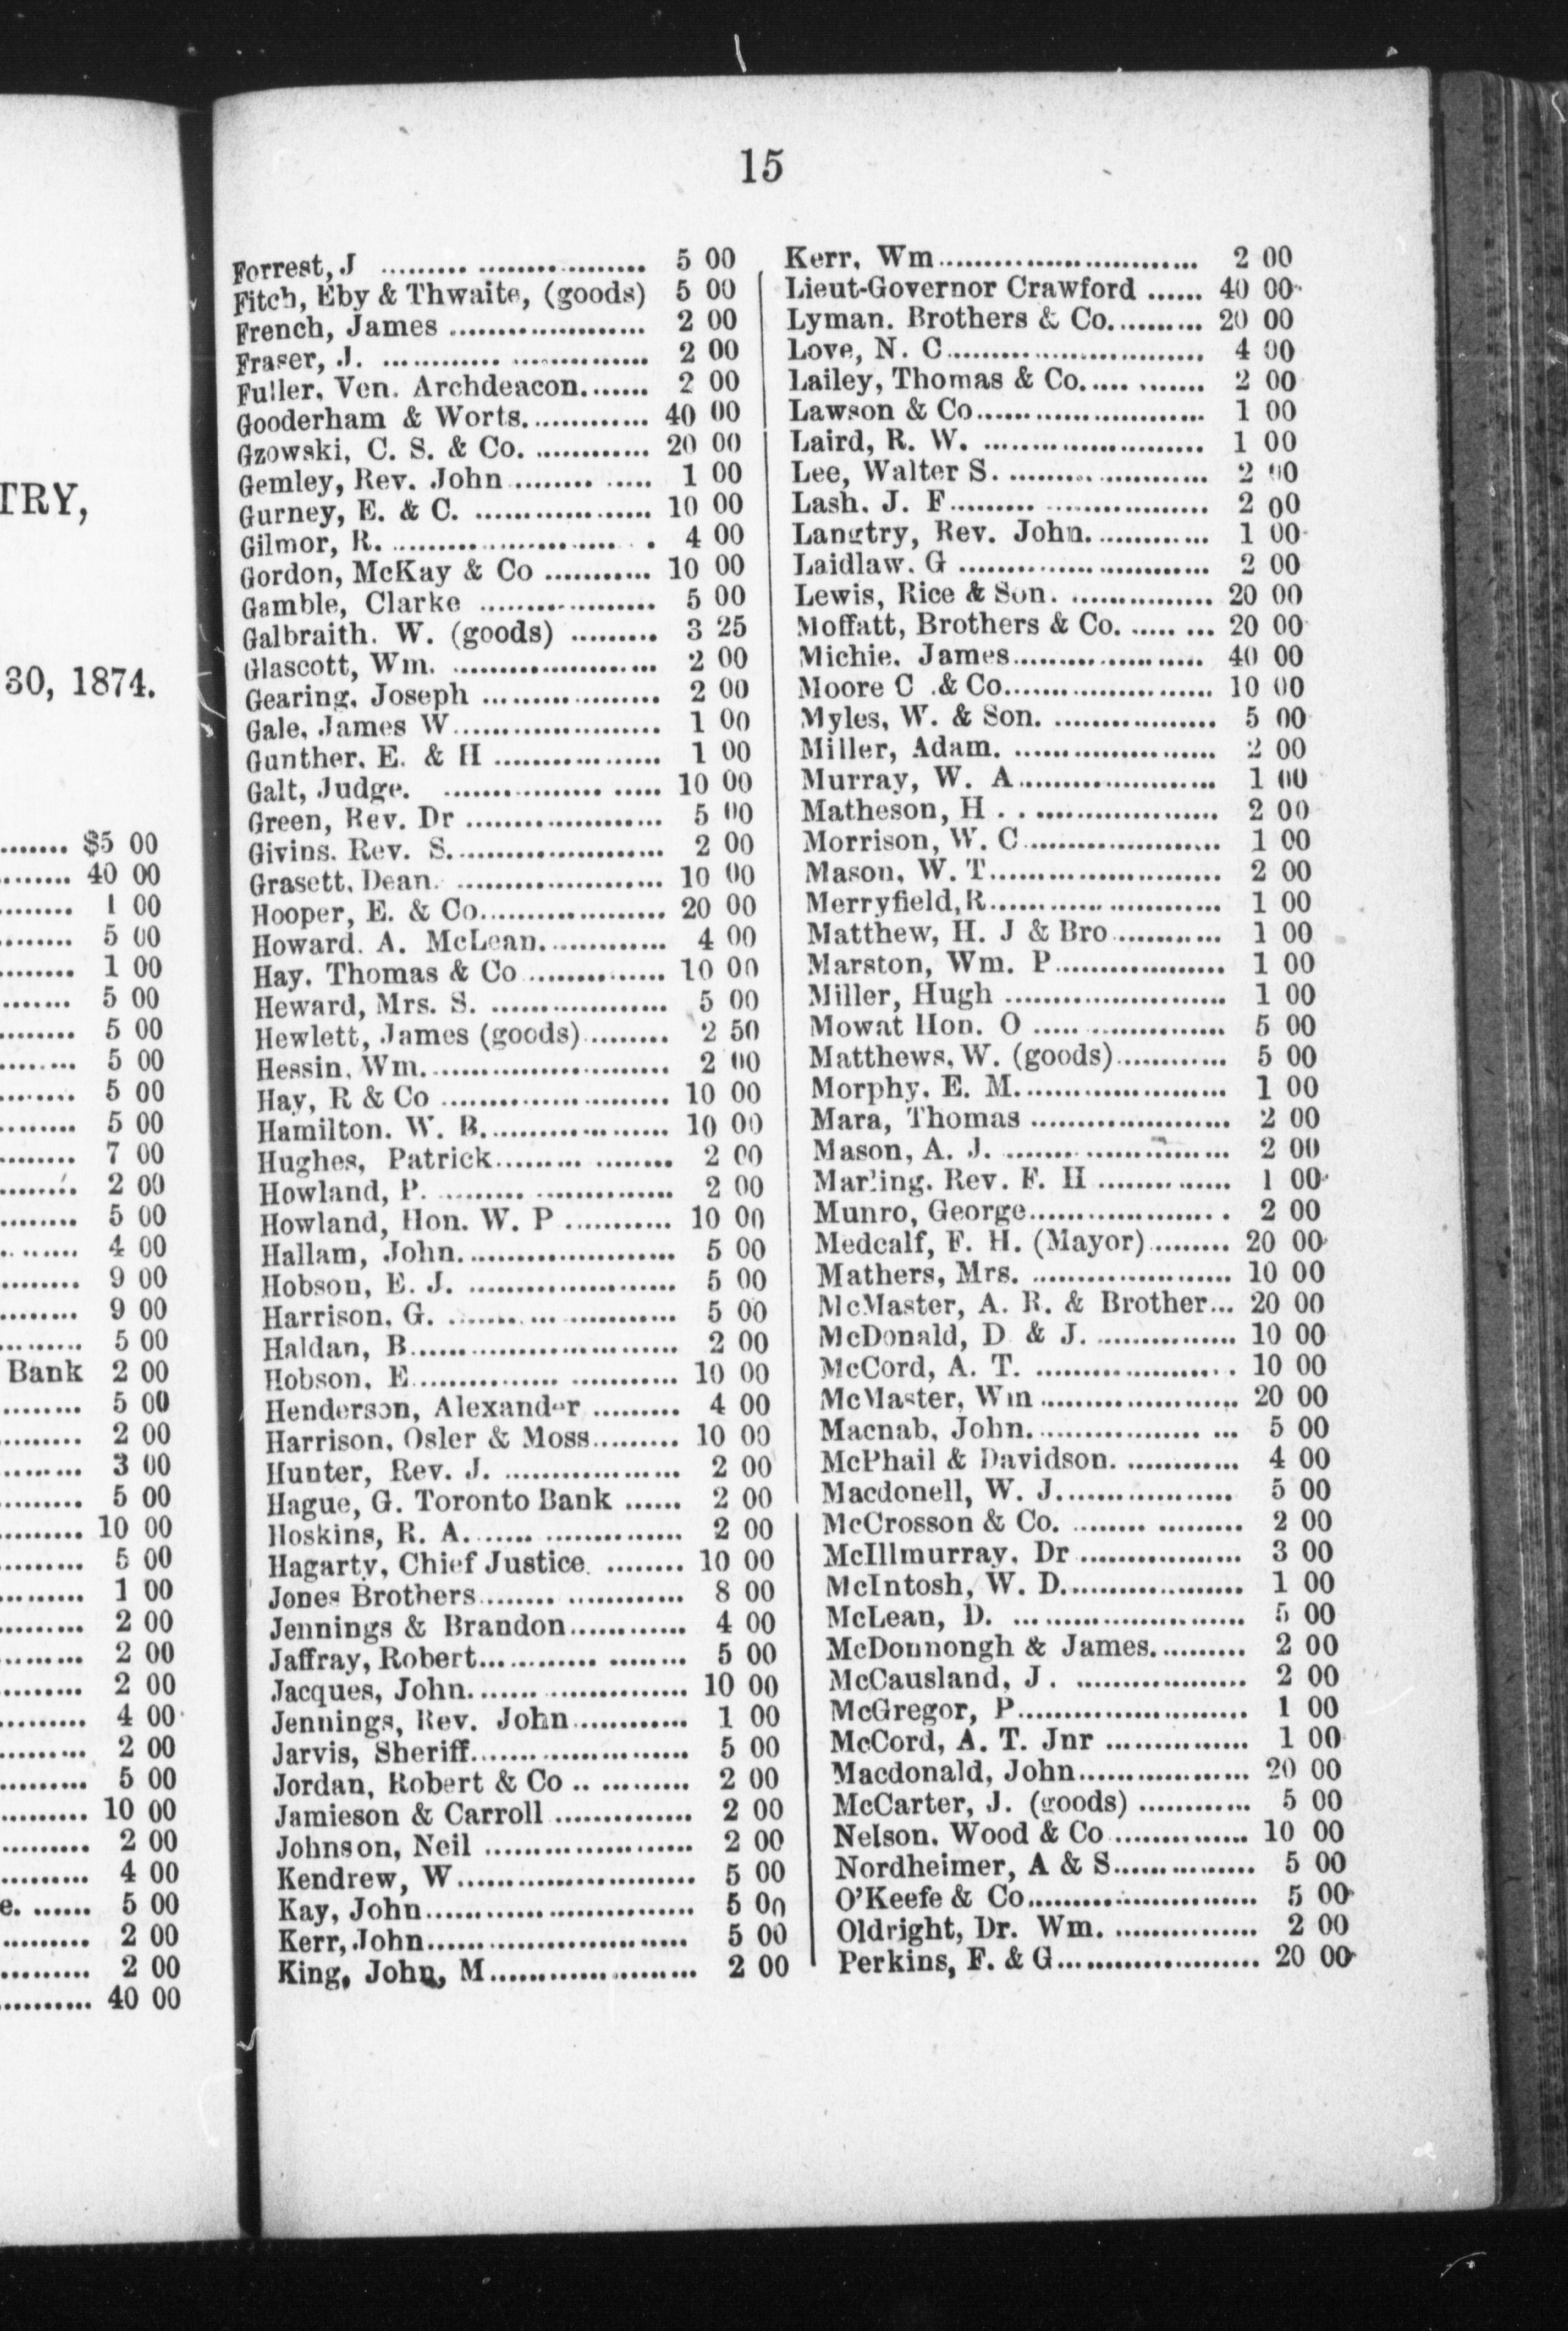 TRY,
30, 1874.
........ $5 00
........ 40 00
........ 1 00
........ 5 00
........ 1 00
........ 5 00
........ 5 00
........ 5 00
........ 5 00
........ 5 00
........ 7 00
........ 2 00
........ 5 00
........ 4 00
........ 9 00
........ 9 00
........ 5 00
Bank 2 00
........ 5 00
........ 2 00
........ 3 00
........ 5 00
........ 10 00
........ 5 00
........ 1 00
........ 2 00
........ 2 00
........ 2 00
........ 4 00
........ 2 00
........ 5 00
........ 10 00
........ 2 00
........ 4 00
e. ...... 5 00
........ 2 00
........ 2 00
........ 40 00
15
Forrest, J ........................... 5 00
Fitch, Eby & Thwaite, (goods) 5 00
French, James ...................... 2 00
Fraser, J. ........................... 2 00
Fuller, Ven. Archdeacon........ 2 00
Gooderham & Worts.............. 40 00
Gzowski, C. S. & Co. ............ 20 00
Gemley, Rev. John ............... 1 00
Gurney, E. & C. ................... 10 00
Gilmor, R. ........................... 4 00
Gordon, McKay & Co ............ 10 00
Gamble, Clarke ................... 5 00
Galbraith. W. (goods) .......... 3 25
Glascott, Wm. ...................... 2 00
Gearing, Joseph ................... 2 00
Gale, James W....................... 1 00
Gunther, E. & H .................. 1 00
Galt, Judge. ........................ 10 00
Green, Rev. Dr ..................... 5 00
Givins. Rev. S....................... 2 00
Grasett, Dean. ...................... 10 00
Hooper, E. & Co.................... 20 00
Howard. A. McLean............. 4 00
Hay, Thomas & Co ............... 10 00
Heward, Mrs. S. ................... 5 00
Hewlett, James (goods)......... 2 50
Hessin, Wm. ........................ 2 00
Hay, R & Co ........................ 10 00
Hamilton. W. B.................... 10 00
Hughes, Patrick................... 2 00
Howland, P. ........................ 2 00
Howland, Hon. W. P ............ 10 00
Hallam, John....................... 5 00
Hobson, E. J. ...................... 5 00
Harrison, G. ........................ 5 00
Haldan, B............................ 2 00
Hobson, E............................ 10 00
Henderson, Alexander ......... 4 00
Harrison, Osler & Moss......... 10 00
Hunter, Rev. J. ................... 2 00
Hague, G. Toronto Bank ...... 2 00
Hoskins, R. A....................... 2 00
Hagarty, Chief Justice. ........ 10 00
Jones Brothers..................... 8 00
Jennings & Brandon............ 4 00
Jaffray, Robert..................... 5 00
Jacques, John....................... 10 00
Jennings, Rev. John............ 1 00
Jarvis, Sheriff...................... 5 00
Jordan, Robert & Co ............ 2 00
Jamieson & Carroll .............. 2 00
Johnson, Neil ...................... 2 00
Kendrew, W......................... 5 00
Kay, John............................ 5 00
Kerr, John........................... 5 00
King, John, M...................... 2 00
Kerr, Wm............................. 2 00
Lieut-Governor Crawford ...... 40 00
Lyman. Brothers & Co.......... 20 00
Love, N. C............................ 4 00
Lailey, Thomas & Co............ 2 00
Lawson & Co........................ 1 00
Laird, R. W. ........................ 1 00
Lee, Walter S. ...................... 2 00
Lash. J. F............................ 2 00
Langtry, Rev. John............. 1 00
Laidlaw. G .......................... 2 00
Lewis, Rice & Son. ............... 20 00
Moffatt, Brothers & Co. ........ 20 00
Michie. James...................... 40 00
Moore C .& Co....................... 10 00
Myles, W. & Son. .................. 5 00
Miller, Adam. ...................... 2 00
Murray, W. A....................... 1 00
Matheson, H . . .................... 2 00
Morrison, W. C...................... 1 00
Mason, W. T......................... 2 00
Merryfield, R........................ 1 00
Matthew, H. J & Bro ............ 1 00
Marston, Wm. P................... 1 00
Miller, Hugh ........................ 1 00
Mowat Hon. O ..................... 5 00
Matthews, W. (goods)............ 5 00
Morphy, E. M....................... 1 00
Mara, Thomas ...................... 2 00
Mason, A. J. ........................ 2 00
Marling. Rev. F. H ............... 1 00
Munro, George...................... 2 00
Medcalf, F. H. (Mayor)......... 20 00
Mathers, Mrs. ...................... 10 00
McMaster, A. R. & Brother... 20 00
McDonald, D & J. ................ 10 00
McCord, A. T. ...................... 10 00
McMaster, Wm ..................... 20 00
Macnab, John....................... 5 00
McPhail & Davidson. ............ 4 00
Macdonell, W. J.................... 5 00
McCrosson & Co. .................. 2 00
McIllmurray, Dr .................. 3 00
McIntosh, W. D.................... 1 00
McLean, D. .......................... 5 00
McDonnongh & James.......... 2 00
McCausland, J . ................... 2 00
McGregor, P......................... 1 00
McCord, A. T. Jnr ............... 1 00
Macdonald, John................... 20 00
McCarter, J. (goods) ............ 5 00
Nelson, Wood & Co............... 10 00
Nordheimer, A & S............... 5 00
O'Keefe & Co........................ 5 00
Oldright, Dr. Wm. ................ 2 00
Perkins, F. & G..................... 20 00